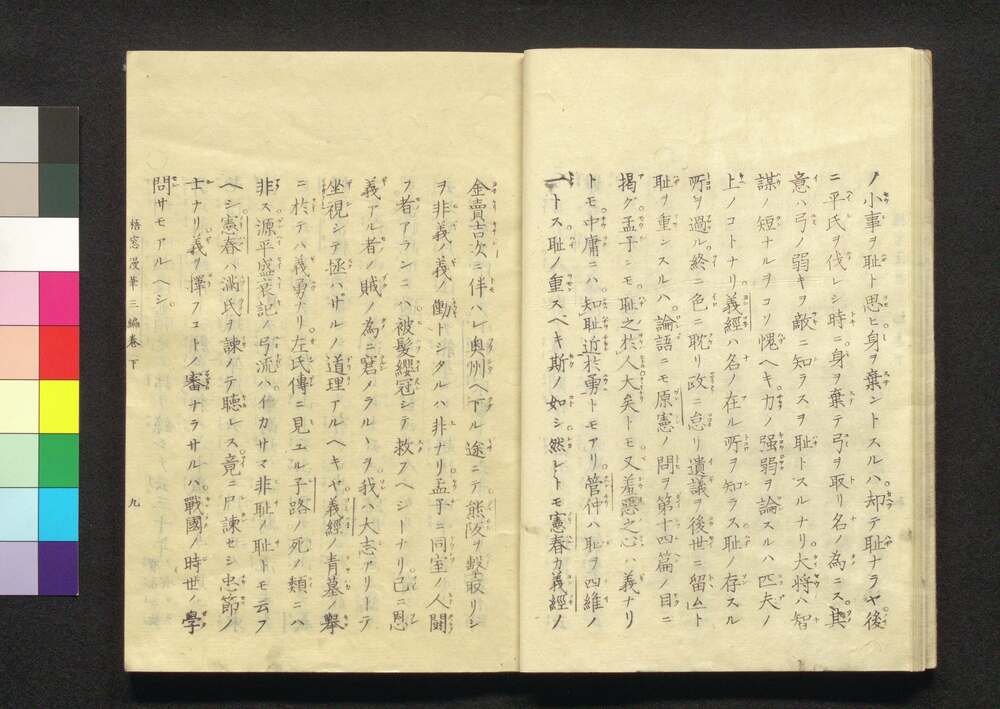 ノ小事ヲ耻ト思ヒ身ヲ棄ントスルハ却テ耻ナラヤ後
ニ平氏ヲ伐レシ時ニ身ヲ棄テ弓ヲ取リ名ノ為ニス其
意ハ弓ノ弱キヲ敵ニ知ラスヲ耻トスルナリ大将ハ智
謀ノ短ナルヲコソ愧ヘキ力ノ强弱ヲ論スルハ匹夫ノ
上ノコトナリ義經ハ名ノ在ル所ヲ知ラス耻ノ存スル
所ヲ過ル終ニ色ニ耽リ政ニ怠リ遺議ヲ後世ニ留ムト
耻ヲ重シスルハ論語ニモ原憲ノ問ヲ第十四篇ノ目ニ
揭グ孟子ンモ耻之於人大矣トモ又羞惡之心ハ義ナリ
トモ中庸ニハ知耻近於勇トモアリ管仲ハ耻ヲ四維ノ
一トス耻ノ重スベキ斯ノ如シ然レトモ憲春カ義經ノ
金賣吉次ニ伴ハレ奥州ヘ下ル途ニテ熊陵ヲ擊殺リシ
ヲ非義ノ義ノ働トシタルハ非ナリ孟子ニ同室ノ人鬪
フ者アランニハ被髮纓冠シテ救フヘシトナリ己ニ恩
義アル者ノ賊ノ為ニ窘メラルヽヲ我ハ大志アリトテ
坐視シテ拯ハザルノ道理アルヘキヤ義經ノ青墓ノ擧
ニ於テハ義勇ナリ左氏傳ニ見ユル子路ノ死ノ類ニハ
非ス源平盛衰記ノ弓流ハイカサマ非耻ノ耻トモ云フ
ヘシ憲春ハ滿氏ヲ諫ノテ聴レス竟ニ尸諫セシ忠節ノ
士ナリ義ヲ擇フコトノ審ナラサルハ戰國ノ時世ノ學
問サモアルヘシ
梧窓漫筆三編卷下 九